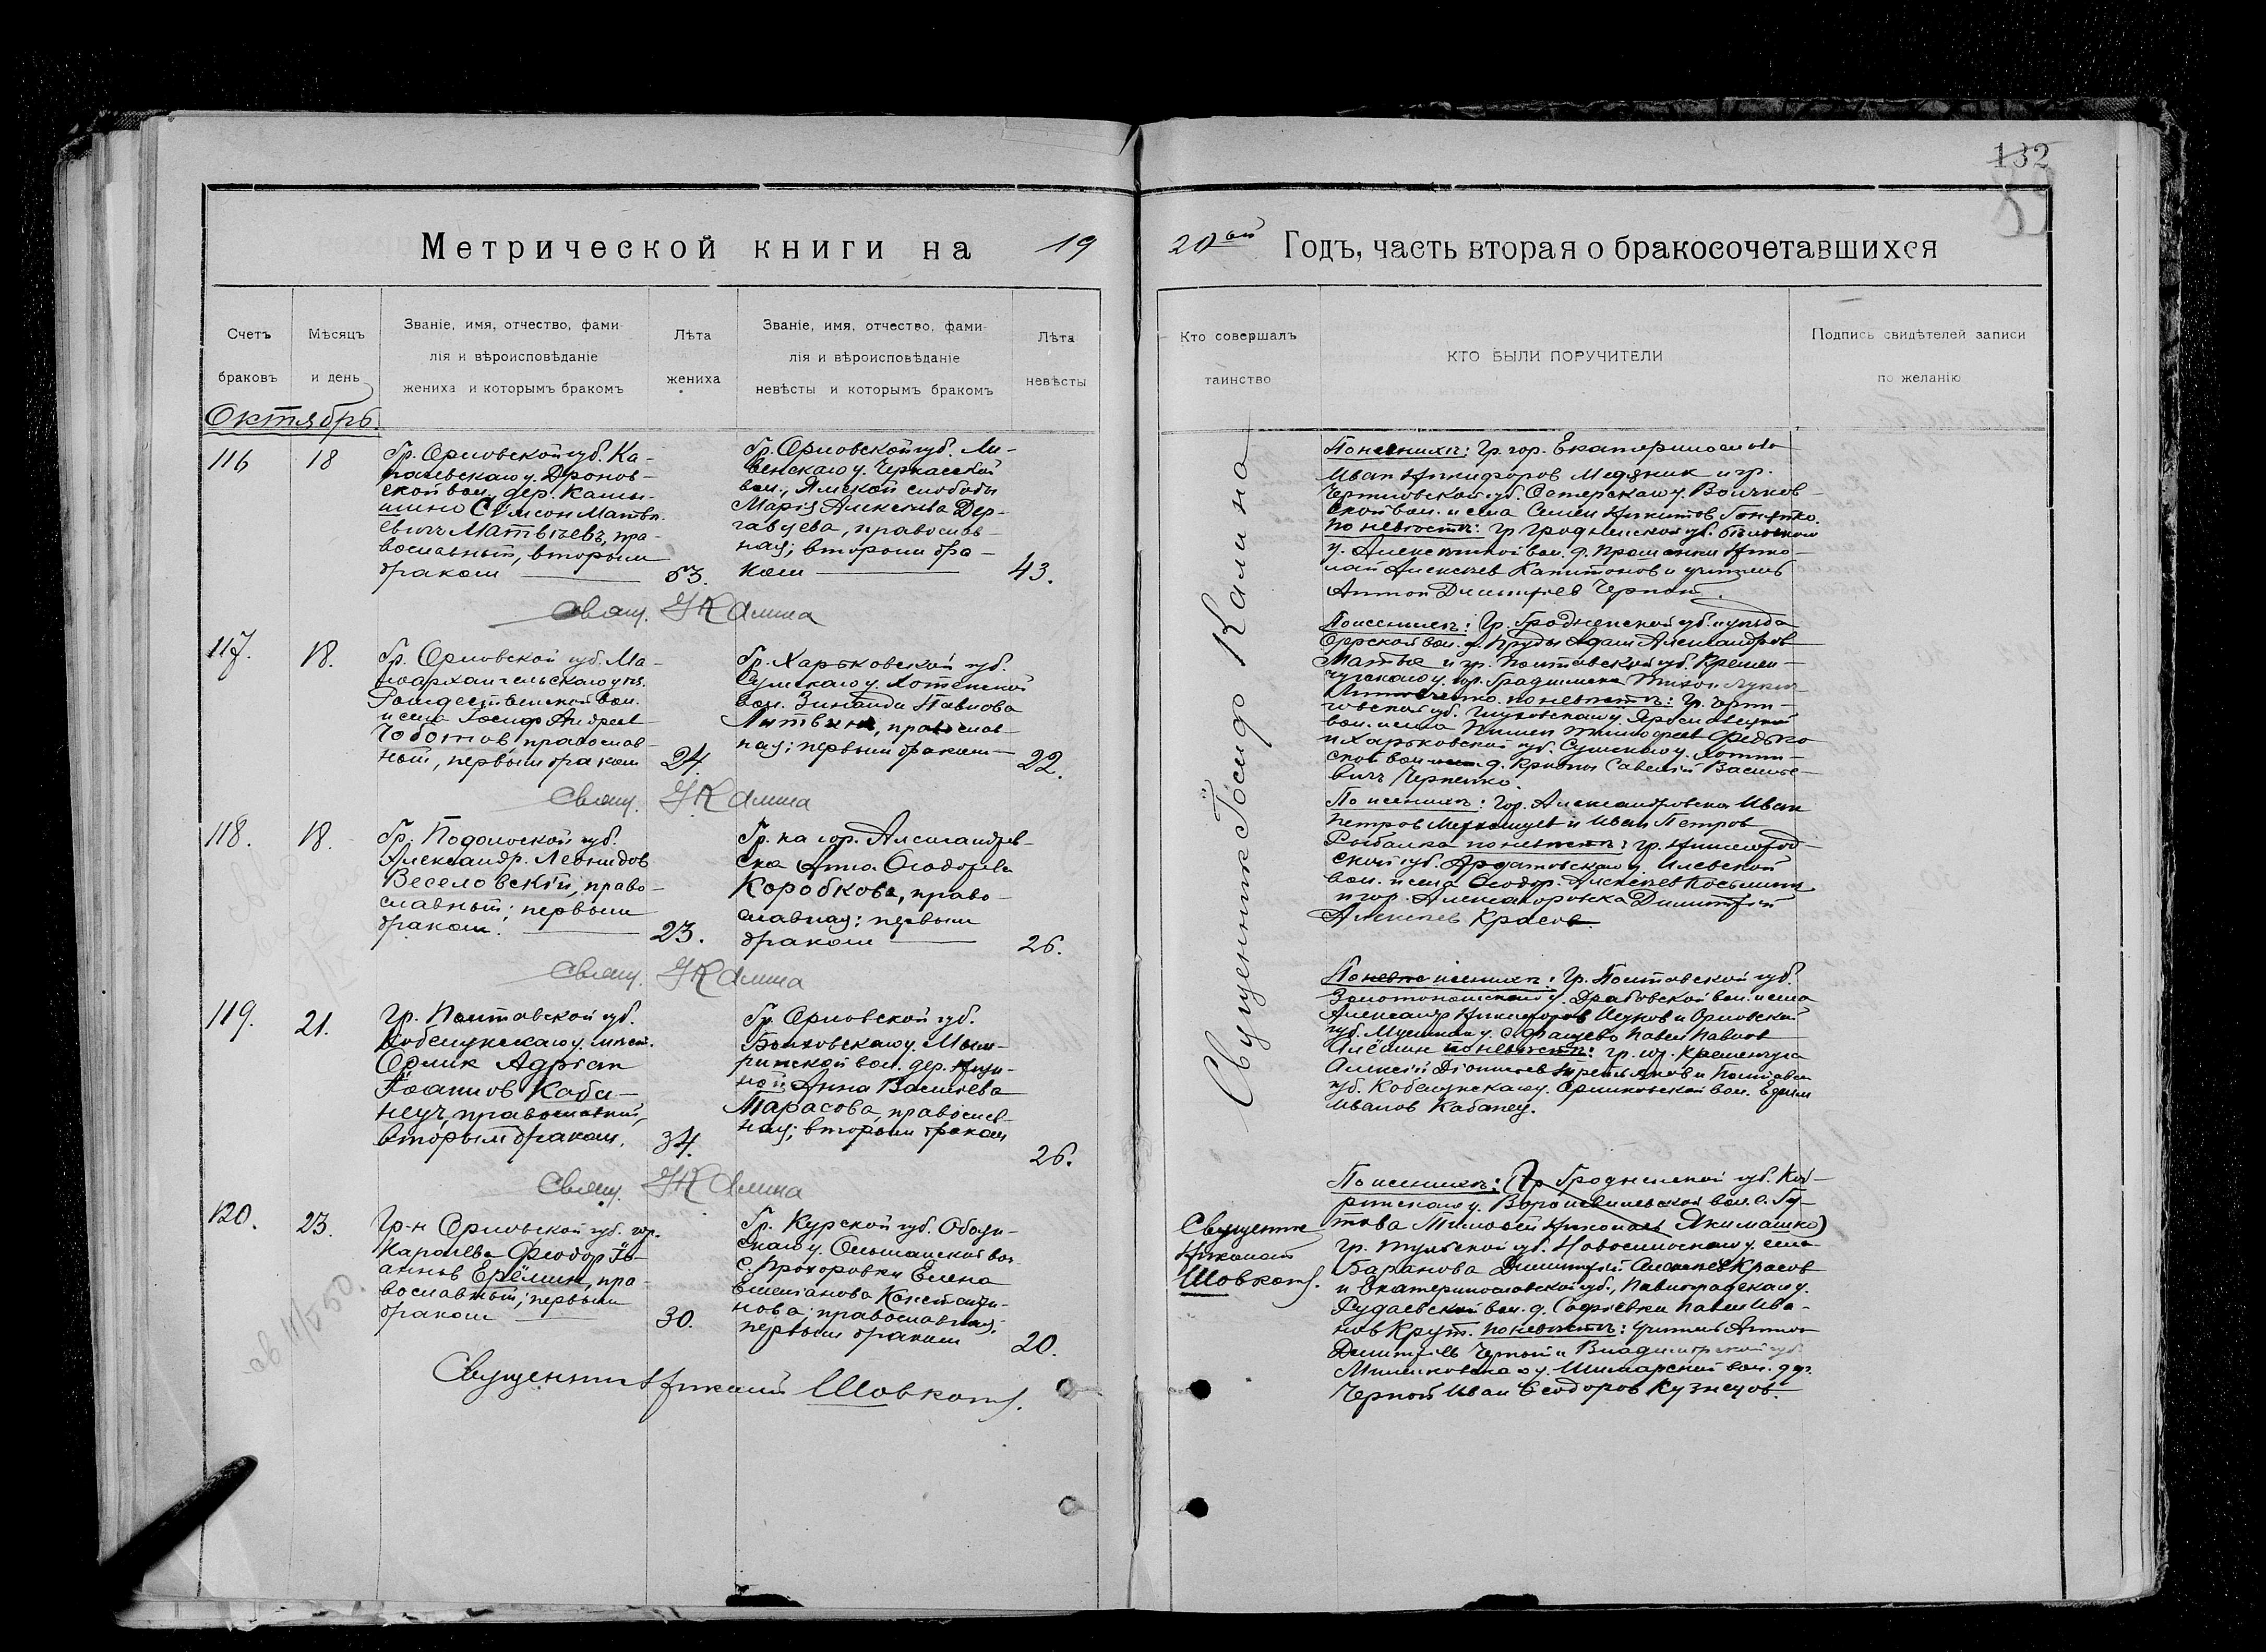 132
Метрической книги на 19
20ый Годъ, часть вторая о бракосочетавшихся
Счетъ браковъ
Мѣсяцъ и день
Званіе, имя, отчество, фами-
лія и вѣроисповѣданіе
жениха и которымъ бракомъ
Лѣта
жениха
Званіе, имя, отчество, фами-
лія и вѣроисповѣданіе
невѣсты и которымъ бракомъ
Лѣта
невѣсты
Кто совершалъ
таинство
КТО БЫЛИ ПОРУЧИТЕЛИ
Подпись свидѣтелей записи
по желанію
Октябрь.
116
18
Гр. Орловской губ. Ка-
рачевскаго у. Дронов-
ской вол. дер. Камы-
шино Симеон Матвѣ-
евичъ Матвѣевъ, пра-
вославный, вторым
браком
53.
Гр. Орловской губ. Ли-
венскаго у. Черкасской
вол., Ямской слободы
Марія Алексѣева Дер-
гавцева, православ-
ная; вторым бра-
ком
43.
свящ. І Калина
Священник Іосиф Калина
По женихѣ: Гр. гор. Екатеринослава
Иван Никифоров Медяник и гр.
Черниговской губ. Остерскаго у. Волчков-
ской вол. и села Семен Никитов
По невѣстѣ: Гр Гродненской губ. Бѣльскаго
у. Алексинской вол. д. Нико-
лай Алексѣев Капитонов и учитель
Антон Димитріев Черной.
117.
18.
Гр. Орловской губ. Ма-
лоархангельскаго уѣз.
Рождественской вол.
и села Іосиф Андреев
Чоботов, православ-
ный, первым браком
24.
Гр. Харьковской губ.
Сумскаго у. Хотенской
вол. Зинаида Павлова
Литвин, православ-
ная; первым браком
22.
свящ. І Калина
По женихѣ: Гр. Гродненской губ. и уѣзда
Озерской вол. д. Пруды Адам Александров
и гр. Полтавской губ. Кремен-
чугскаго у. гор. Градижска Тихон
по невѣстѣ: Гр. Черни-
говской губ. Глуховскаго у. Ярославецкой
вол. и села Пимен Тимофеев Федько
и Харьковской губ. Сумскаго у. Хотин-
ской вол. д. Савелій Василье-
вичъ Черненко.
118.
18.
Гр. Подольской губ.
Александр. Леонидов
Веселовскій, право-
славный; первым
браком.
23.
Гр-ка гор. Александров-
ска Анна Ѳеодорова
Коробкова, право-
славная; первым
браком
26.
свящ. І Калина
По женихѣ: Гр. Александровска Иван
Петров и Иван Петров
Рыбалка по невѣстѣ: гр. Нижегород-
ской губ. Ардатовскаго у. Илевской
вол. и села Ѳеодор. Алексѣев Косьмин
и гор. Александровска Димитрій
Алексѣев Красов.
119.
21.
Гр. Полтавской губ.
Кобелякскаго у. мѣст.
Орлик Адріан
Іоаннов Каба-
нец, православный,
вторым браком.
34.
Гр. Орловской губ.
Болховскаго у.
вол. дер.
Анна Васильева
Марасова, православ-
ная; вторым браком
26.
свящ. І Калина
По женихѣ: Гр. Полтавской губ.
Золотоношскаго у. Драбовской вол. и села
Александр Никифоров и Орловской
губ. Мценскаго у. Павел Павлов
Алёшин по невѣстѣ: гр. гор. Кременчуга
Алексій Діонисіев и Полтавск
губ. Кобелякскаго у. Орликовской вол. Ефим
Иванов Кабанец.
120.
23.
Гр-н Орловской губ. гор.
Карачева Ѳеодор Іо-
аннов Ерёмин, пра-
вославный; первым
браком
30.
Гр. Курской губ. Обоян-
скаго у. Ольшанской вол.
с. Прохоровки Елена
Емельянова Константи-
нова православная;
первым браком
20.
Священник Николай Шовкопл.
Священник
Николай
Шовкопл.
По женихѣ: (Гр Гродненской губ. Коб-
ринскаго у. вол. с.
Тимофей Николаев Якимашко)
гр. Тульской губ. Новосильскаго у. села
Баранова Димитрій Алексѣев Красов
и Екатеринославской губ., Павлоградскаго у.
вол. д. Софіевки Павел Ива-
нов Крут. по невѣстѣ: учитель Антон
Димитріев Черной и Владимірской губ.
Меленковскаго у. вол. дер.
Черной Иван Ѳеодоров Кузнецов.